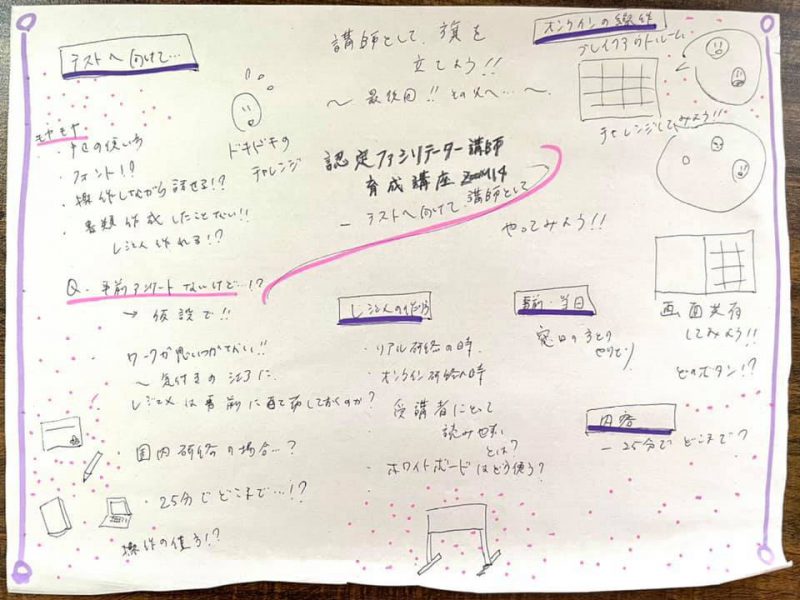 テストへ向けて…
講師として、旗を
立てよう!!
〜 最後回!! その先へ… 〜
オンラインの操作
ブレイクアウトルーム
チャレンジしてみよう!!
ドキドキの
チャレンジ
認定ファシリテーター講師
育成講座 ZOOM14
― テストへ向けて、講師として
やってみよう!!
モヤモヤ
・の使い方
・フォント!?
・操作しながら話せる!?
・書類作成したことない!!
レジュメ作れる!?
Q. 事前アンケートないけど…!?
→ 仮説で!!
・ワークが思いつかない!!
〜気付きの
レジュメは事前に配布しておくのか?
・国内研修の場合…?
・25分でどこまで…!?
操作の使う!?
レジュメの作り方
・リアル研修の時
・オンライン研修の時
・受講者にとって
読みやすい
とは?
・ホワイトボードはどう使う?
事前・当日
窓口のやりとり
画面共有
してみよう!!
どのボタン!?
内容
― 25分でどこまで?